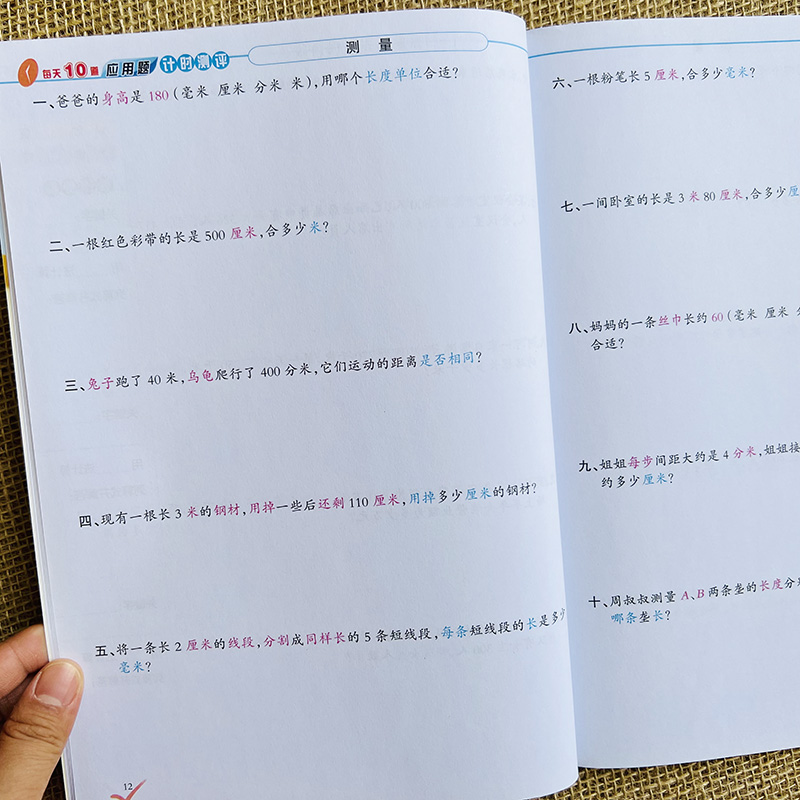 每天10道 应用题 计时测评
测 量
一、爸爸的身高是 180 (毫米 厘米 分米 米),用哪个长度单位合适?
二、一根红色彩带的长是 500 厘米,合多少米?
三、兔子跑了 40 米,乌龟爬行了 400 分米,它们运动的距离是否相同?
四、现有一根长 3 米的钢材,用掉一些后还剩 110 厘米,用掉多少厘米的钢材?
五、将一条长 2 厘米的线段,分割成同样长的 5 条短线段,每条短线段的长是多少
毫米?
12
六、一根粉笔长 5 厘米,合多少毫米?
七、一间卧室的长是 3 米 80 厘米,合多少厘
八、妈妈的一条丝巾长约 60 (毫米 厘米
合适?
九、姐姐每步间距大约是 4 分米,姐姐接
约多少厘米?
十、周叔叔测量 A、B 两条垄的长度分
哪条垄长?